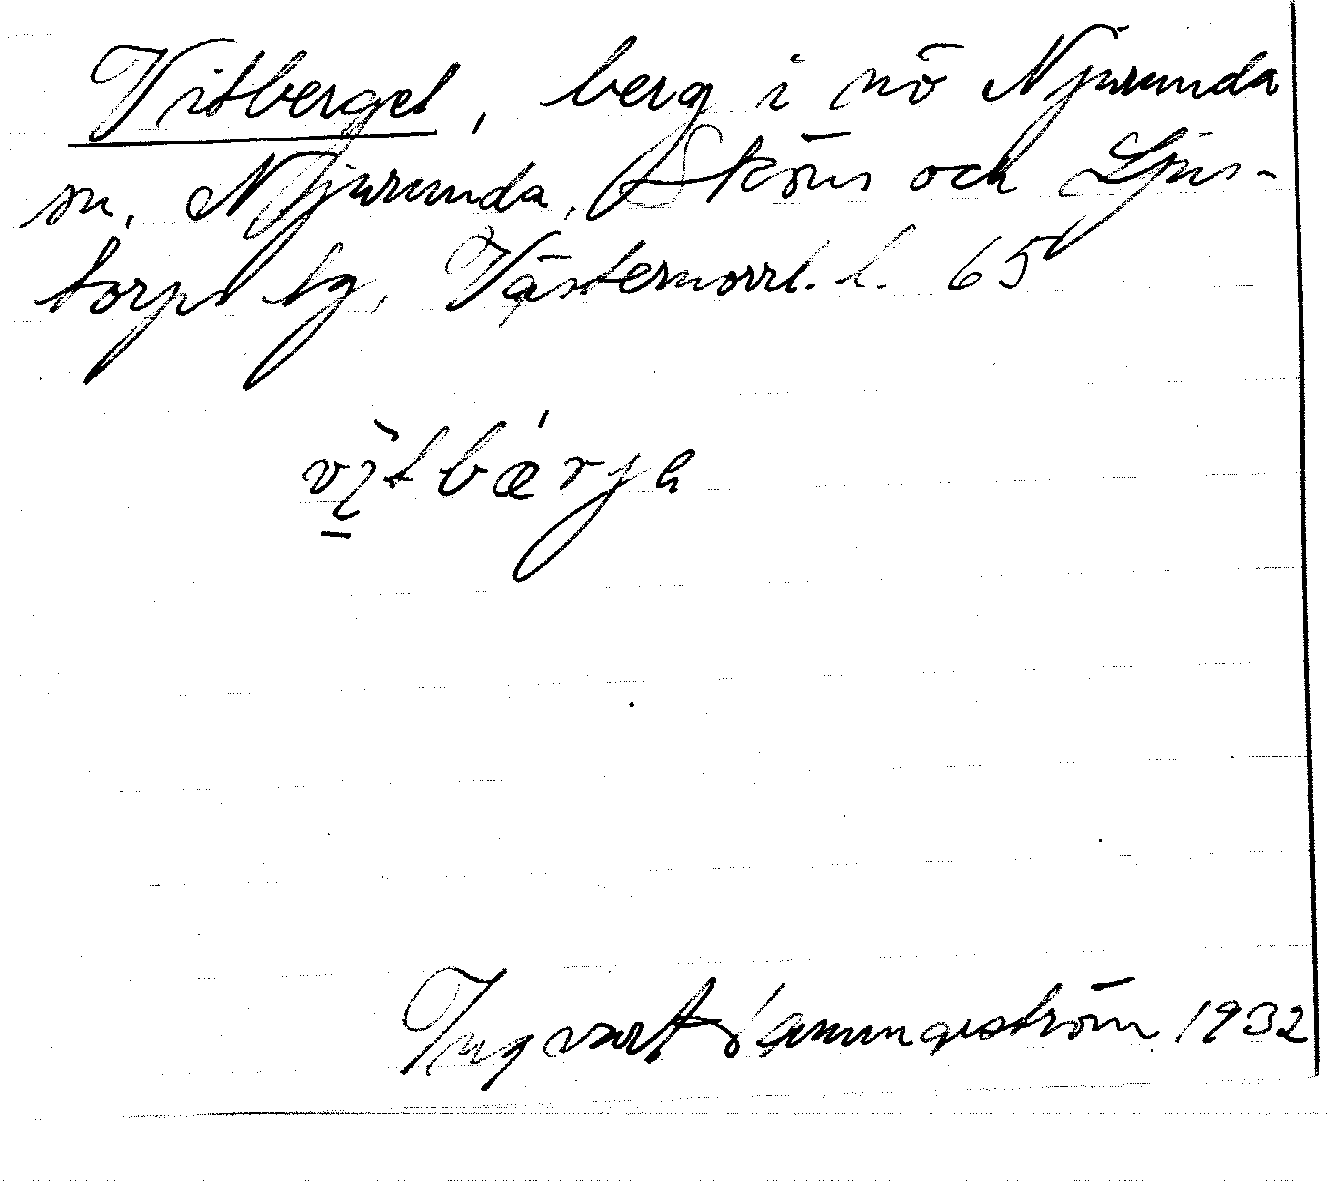 Vitberget, berg i nö Njurunda
sn, Njurunda, Sköns och Ljus-
torps tg, Västernorrl. l. 65
vì̠tbǽrja
Ingvart Sanningström 1932